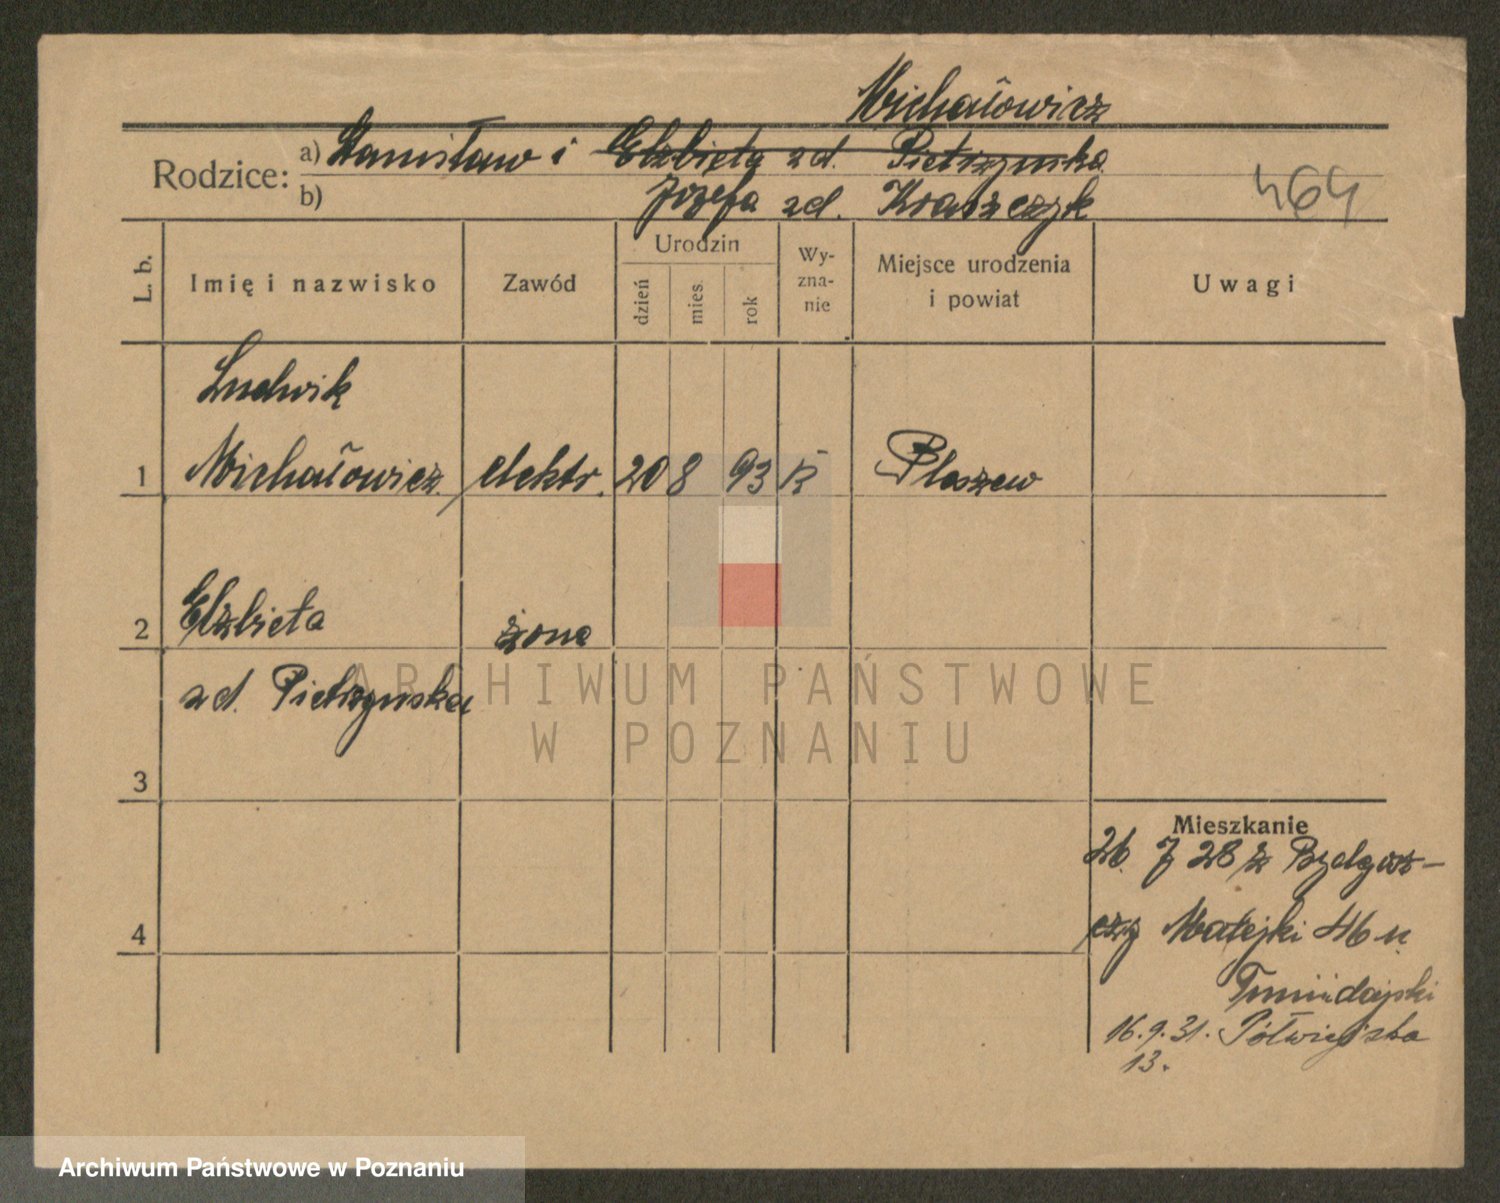 Michałowicz
Rodzice: a) Stanisław i Elżbieta zd. Pietrzynska
b) Józefa zd. Kraszczyk
464
L. b. Imię i nazwisko Zawód Urodzin dzień mies. rok Wy-zna-nie Miejsce urodzenia i powiat Uwagi
Ludwik
1 Michałowicz elektr. 20 8 93 K Pleszew
2 Elżbieta żona
zd. Pietrzynska
3
Mieszkanie
26. 7 28 z Bydgosz-
czy Matejki 46 u
4
16.9.31. Półwiejska
13.
ARCHIWUM PAŃSTWOWE
W POZNANIU
Archiwum Państwowe w Poznaniu